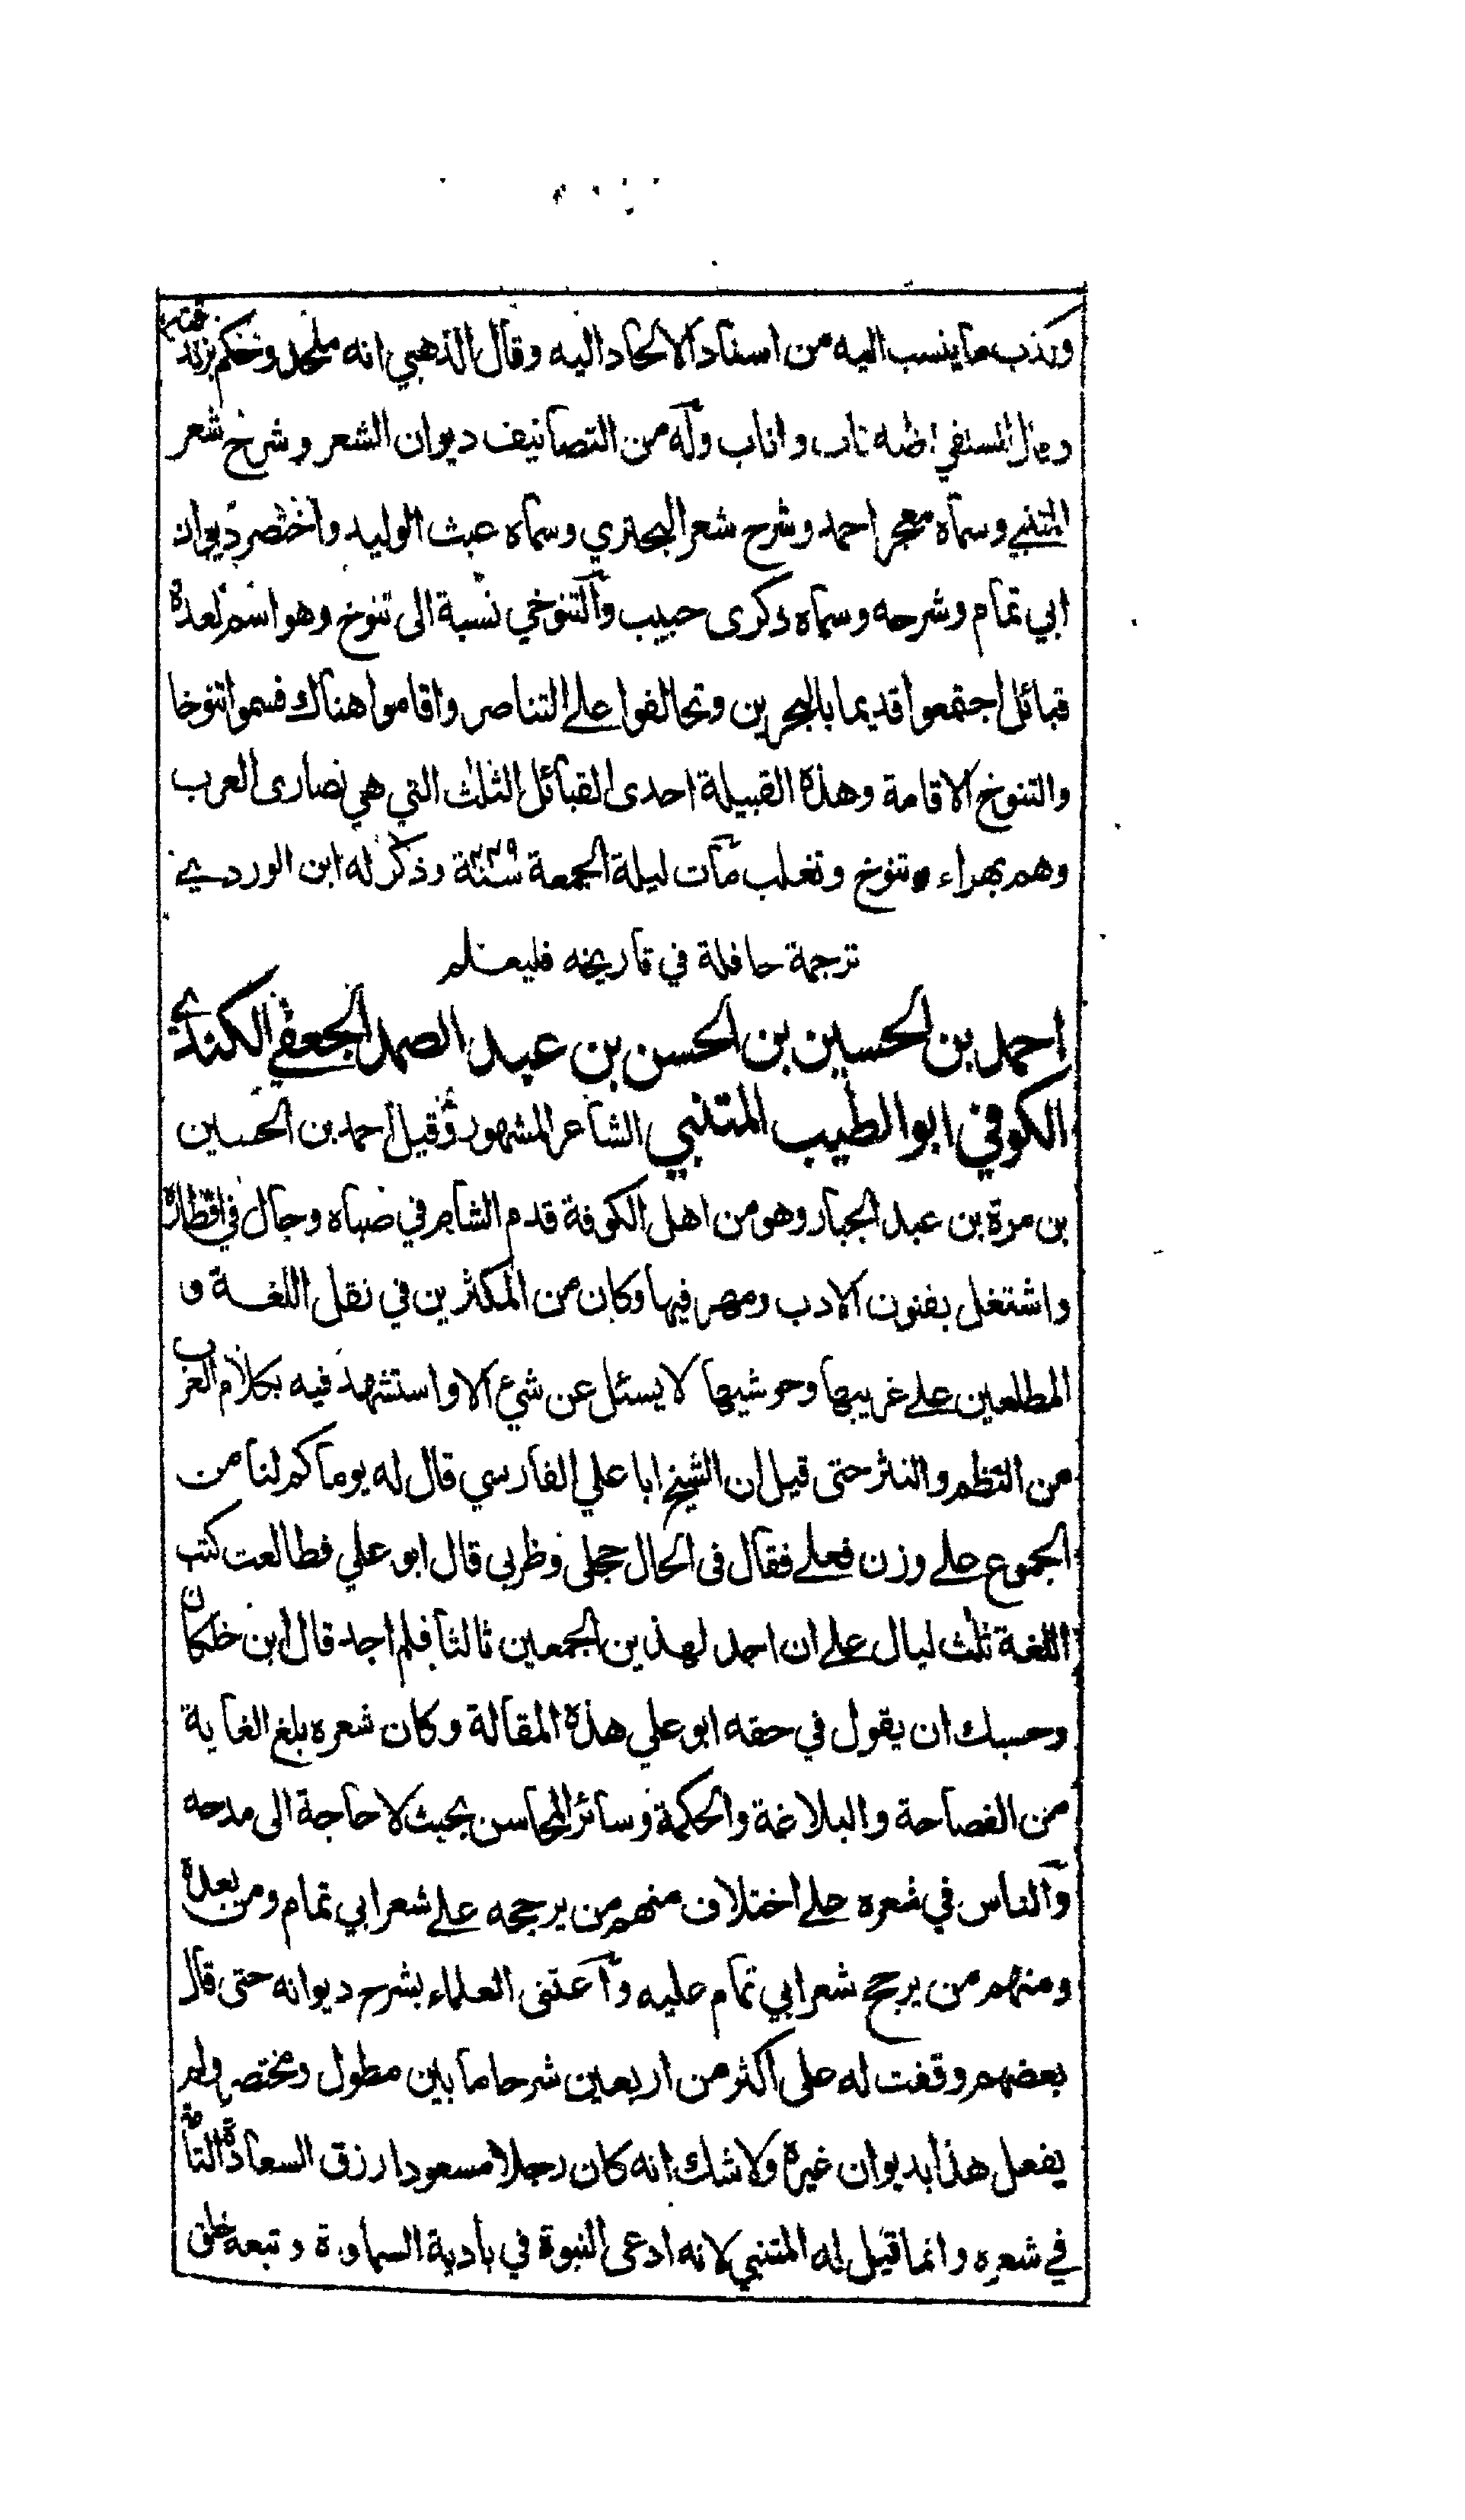 وكذب ما ينسب اليه من اسناد الالحاد اليه وقال الذهبي انه ملحد وحكم بزندقته
وقال السلفي اظنه تاب واناب وله من التصانيف ديوان الشعر وشرح شعر
المتنبي وسماه معجز احمد وشرح شعر البحتري وسماه عبث الوليد واختصر ديوان
ابي تمام وشرحه وسماه ذكرى حبيب والتنوخي نسبة الى تنوخ وهو اسم لعدة
قبائل اجتمعوا قديما بالبحرين وتحالفوا على التناصر واقاموا هناك فسموا تنوخا
والتنوخ الاقامة وهذه القبيلة احدى القبائل الثلث التي هي نصارى العرب
وهم بهراء وتنوخ وتغلب مات ليلة الجمعة سنة ٤٤٩ وذكر له ابن الوردي
ترجمة حافلة في تاريخه فليعلم
احمد بن الحسين بن الحسن بن عبد الصمد الجعفي الكندي
الكوفي ابو الطيب المتنبي الشاعر المشهور وقيل احمد بن الحسين
بن مرة بن عبد الجبار وهو من اهل الكوفة قدم الشام في صباه وجال في اقطاره
واشتغل بفنون الادب ومهر فيها وكان من المكثرين في نقل اللغة و
المطلعين على غريبها وحوشيها لا يسئل عن شيء الا واستشهد فيه بكلام العرب
من النظم والنثر حتى قيل ان الشيخ ابا علي الفارسي قال له يوما كم لنا من
الجموع على وزن فعلى فقال فى الحال حجلى وظربى قال ابو علي فطالعت كتب
اللغة ثلث ليال على ان اجد لهذين الجمعين ثالثا فلم اجد قال ابن خلكان
وحسبك ان يقول في حقه ابو علي هذه المقالة وكان شعره بلغ الغاية
من الفصاحة والبلاغة والحكمة وسائر المحاسن بحيث لا حاجة الى مدحه
والناس في شعره على اختلاف منهم من يرجحه على شعر ابي تمام ومن بعده
ومنهم من يرجح شعر ابي تمام عليه واعتنى العلماء بشرح ديوانه حتى قال
بعضهم وقفت له على اكثر من اربعين شرحا ما بين مطول ومختصر ولم
يفعل هذا بديوان غيره ولا شك انه كان رجلا مسعودا رزق السعادة التامة
في شعره وانما قيل له المتنبي لانه ادعى النبوة في بادية السماوة وتبعه خلق